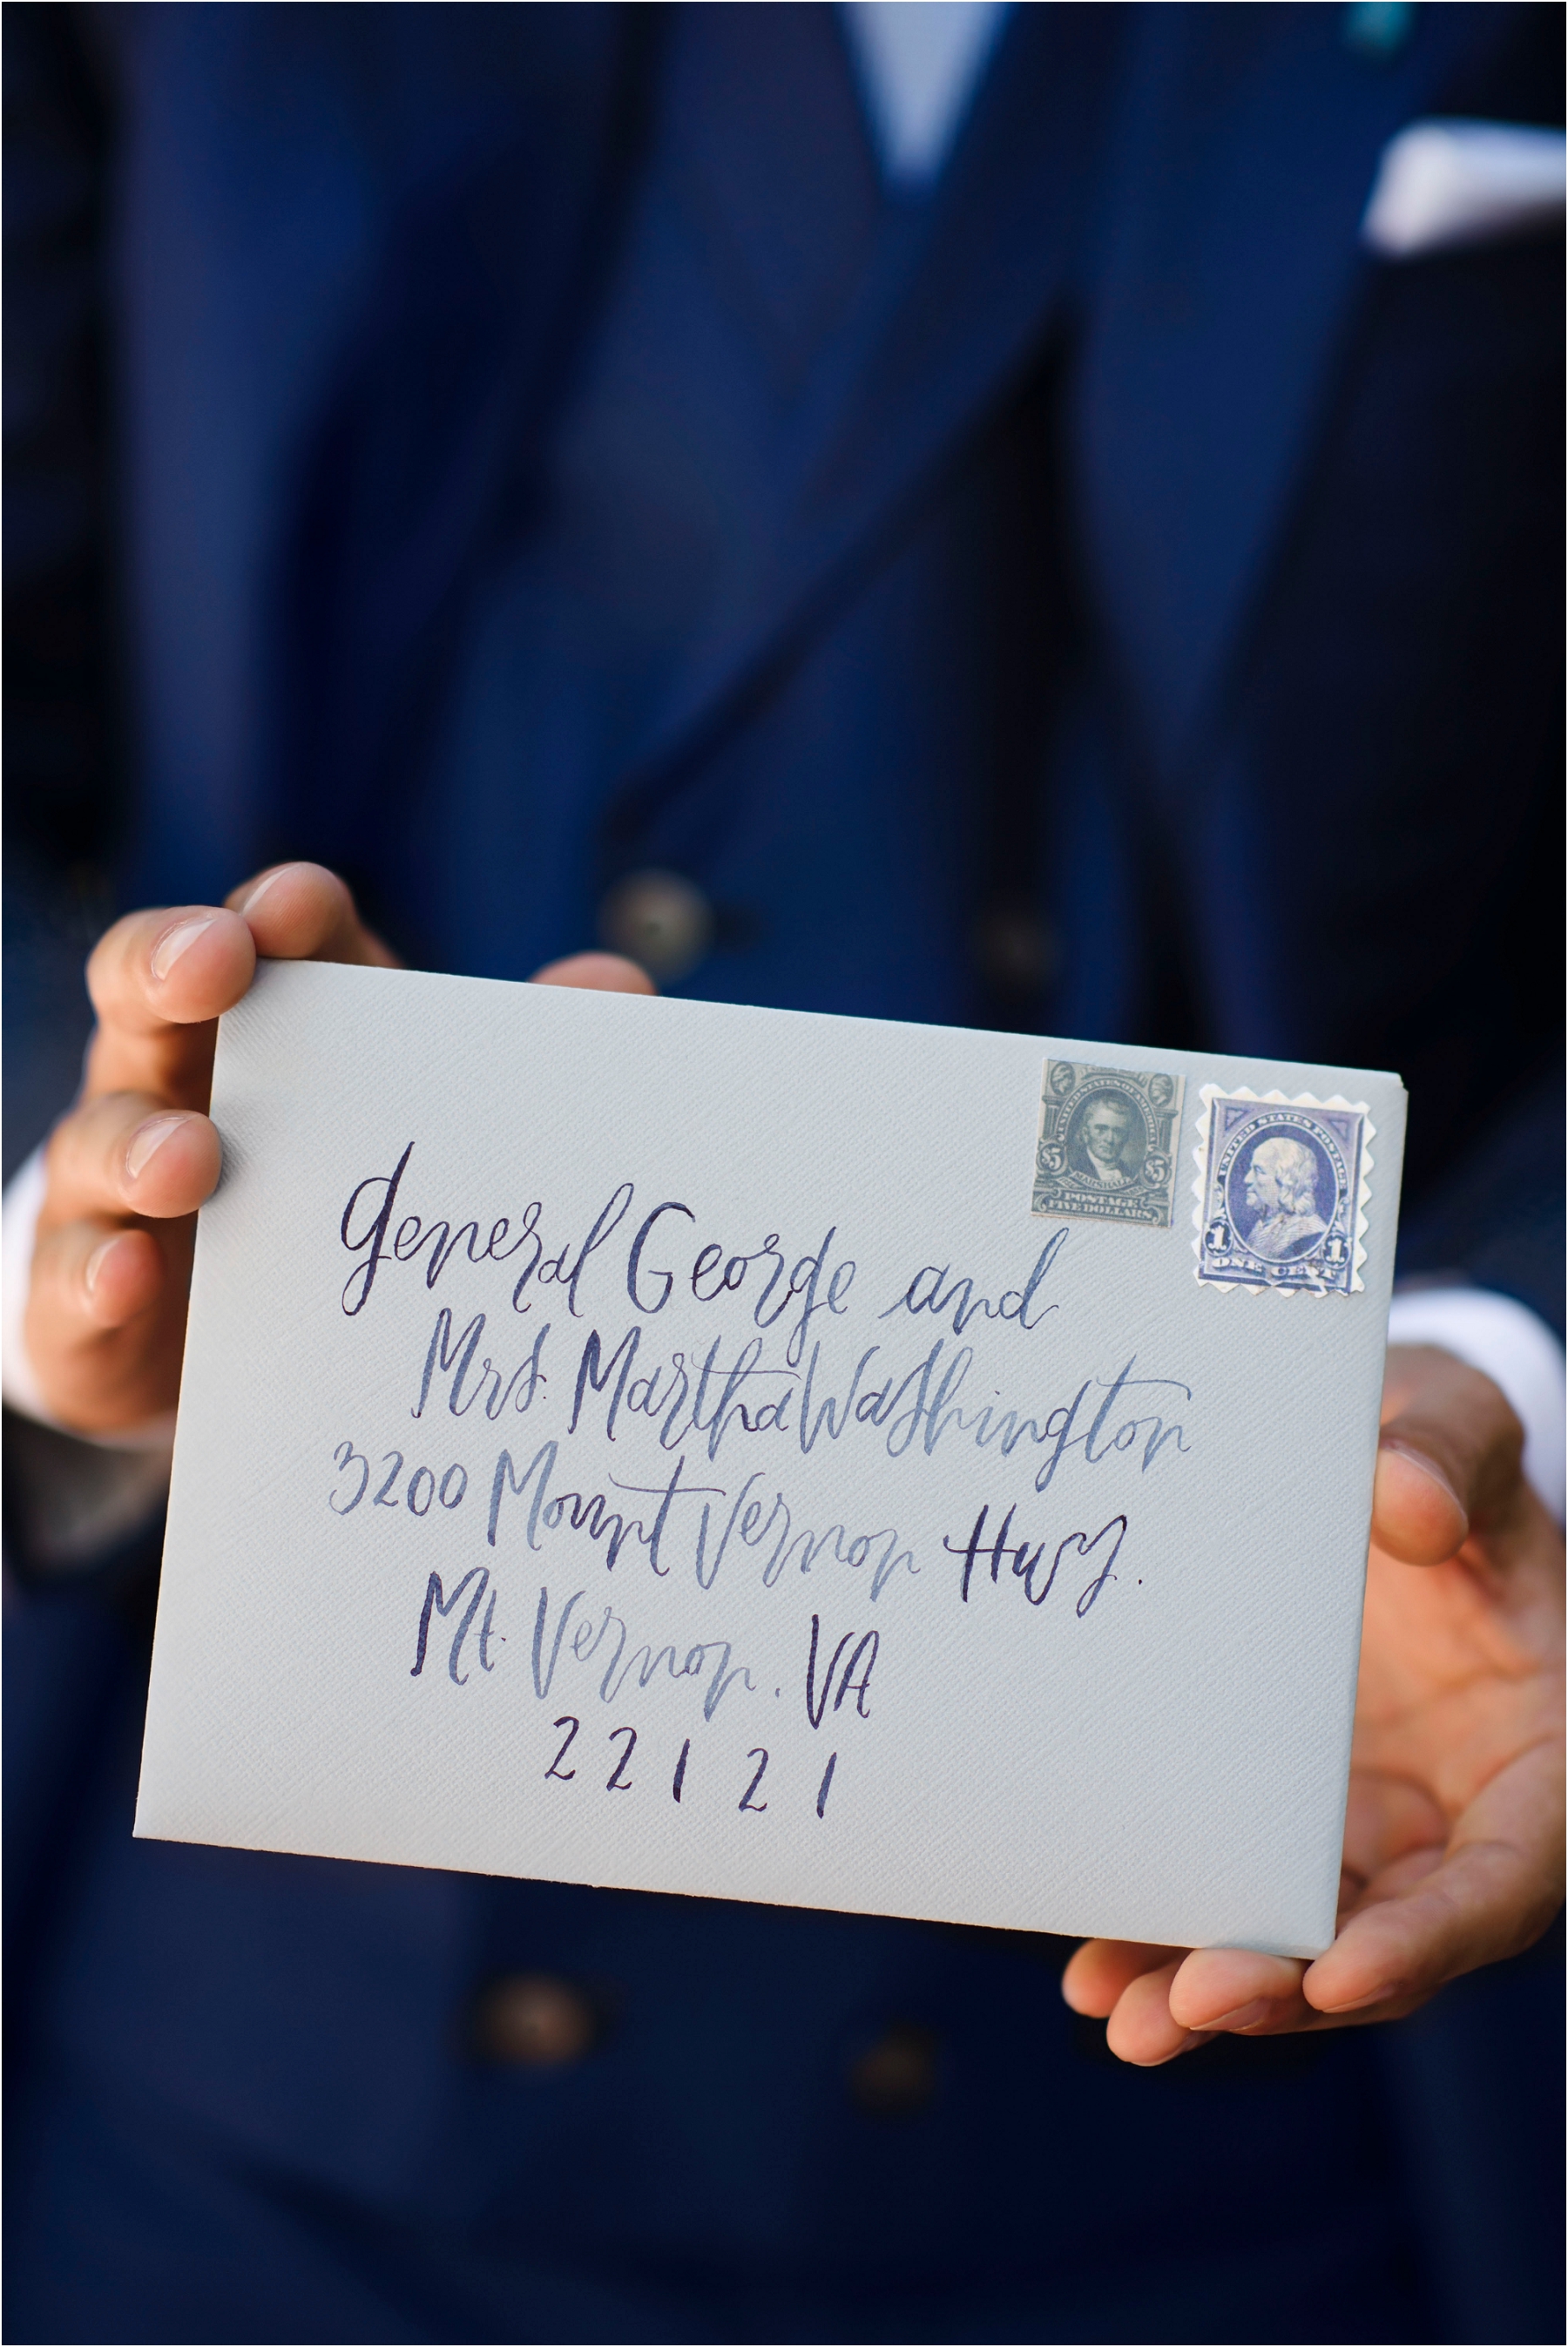 General George and
Mrs. Martha Washington
3200 Mount Vernon Hwy.
Mt. Vernon, VA
22121
UNITED STATES OF AMERICA
$5 $5
MARSHALL
POSTAGE
FIVE DOLLARS
UNITED STATES POSTAGE
1 1
ONE CENT